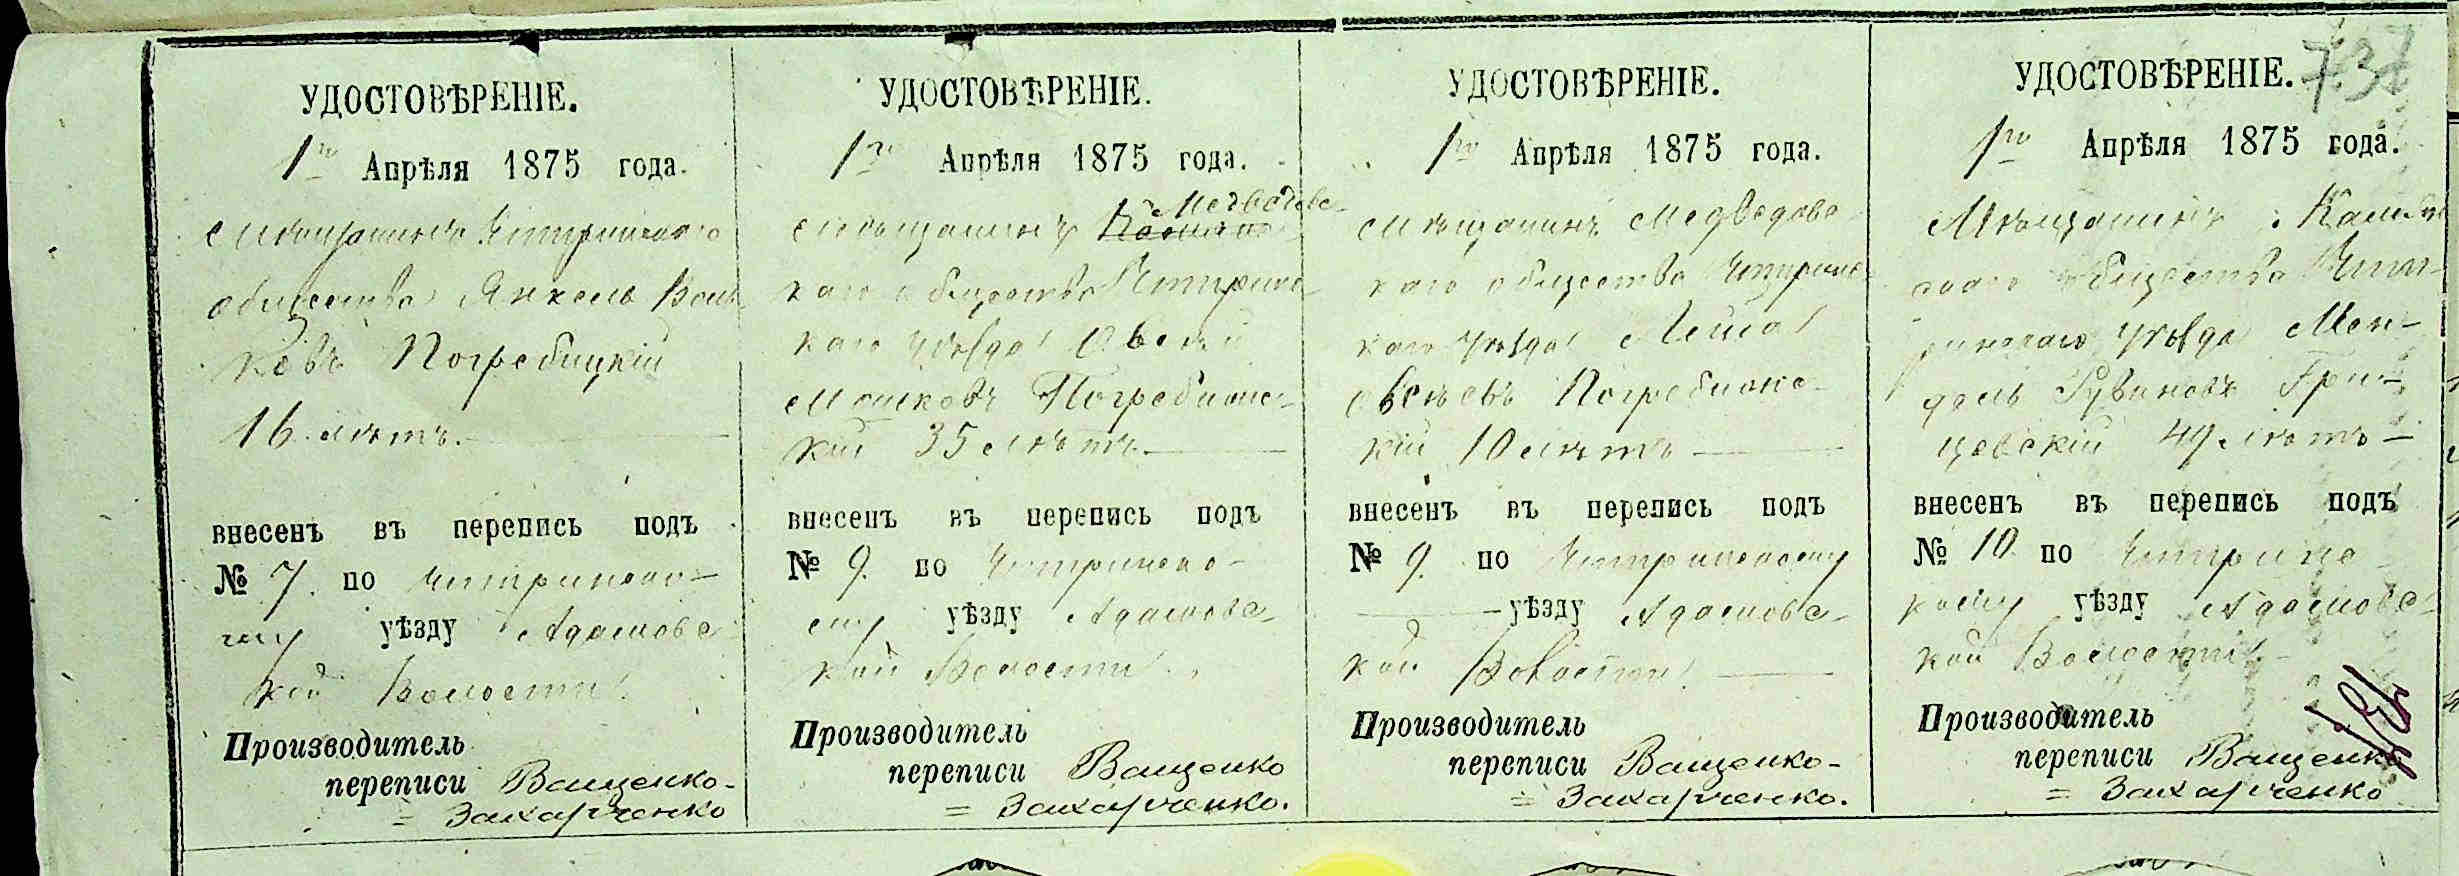 737
УДОСТОВѢРЕНІЕ.
1го Апрѣля 1875 года.
Мѣщанинъ Чигринскаго
общества Янкель Вол-
ковъ Погребицкій
16 лѣтъ.
внесенъ въ перепись подъ
№ 7. по Чигринско-
му уѣзду Адамовс
кой Волости.
Производитель
переписи Ващенко-
= Захарченко
УДОСТОВѢРЕНІЕ.
1го Апрѣля 1875 года.
Медведовс-
Мѣщанинъ
каго общества Чигринс-
каго уѣзда Овсей
Мошковъ Погребинс-
кий 35 лѣтъ
внесенъ въ перепись подъ
№ 9. по Чигринско-
му уѣзду Адамовс-
кой Волости.
Производитель
переписи Ващенко
= Захарченко.
УДОСТОВѢРЕНІЕ.
1го Апрѣля 1875 года.
Мѣщанинъ Медведовс
каго общества Чигринс-
каго уѣзда Лейба
Овсѣевъ Погребинс-
кій 10 лѣтъ
внесенъ въ перепись подъ
№ 9. по Чигринскому
уѣзду Адамовс-
кой Волости.
Производитель
переписи Ващенко-
= Захарченко.
УДОСТОВѢРЕНІЕ.
1го Апрѣля 1875 года.
Мѣщанинъ
скаго общества Чиг-
ринскаго уѣзда Мен-
дель Рувиновъ Гри-
цевскій 49 лѣтъ
внесенъ въ перепись подъ
№ 10 по Чигринс
кому уѣзду Адамовс-
кой Волости
Производитель
переписи Ващенко
= Захарченко